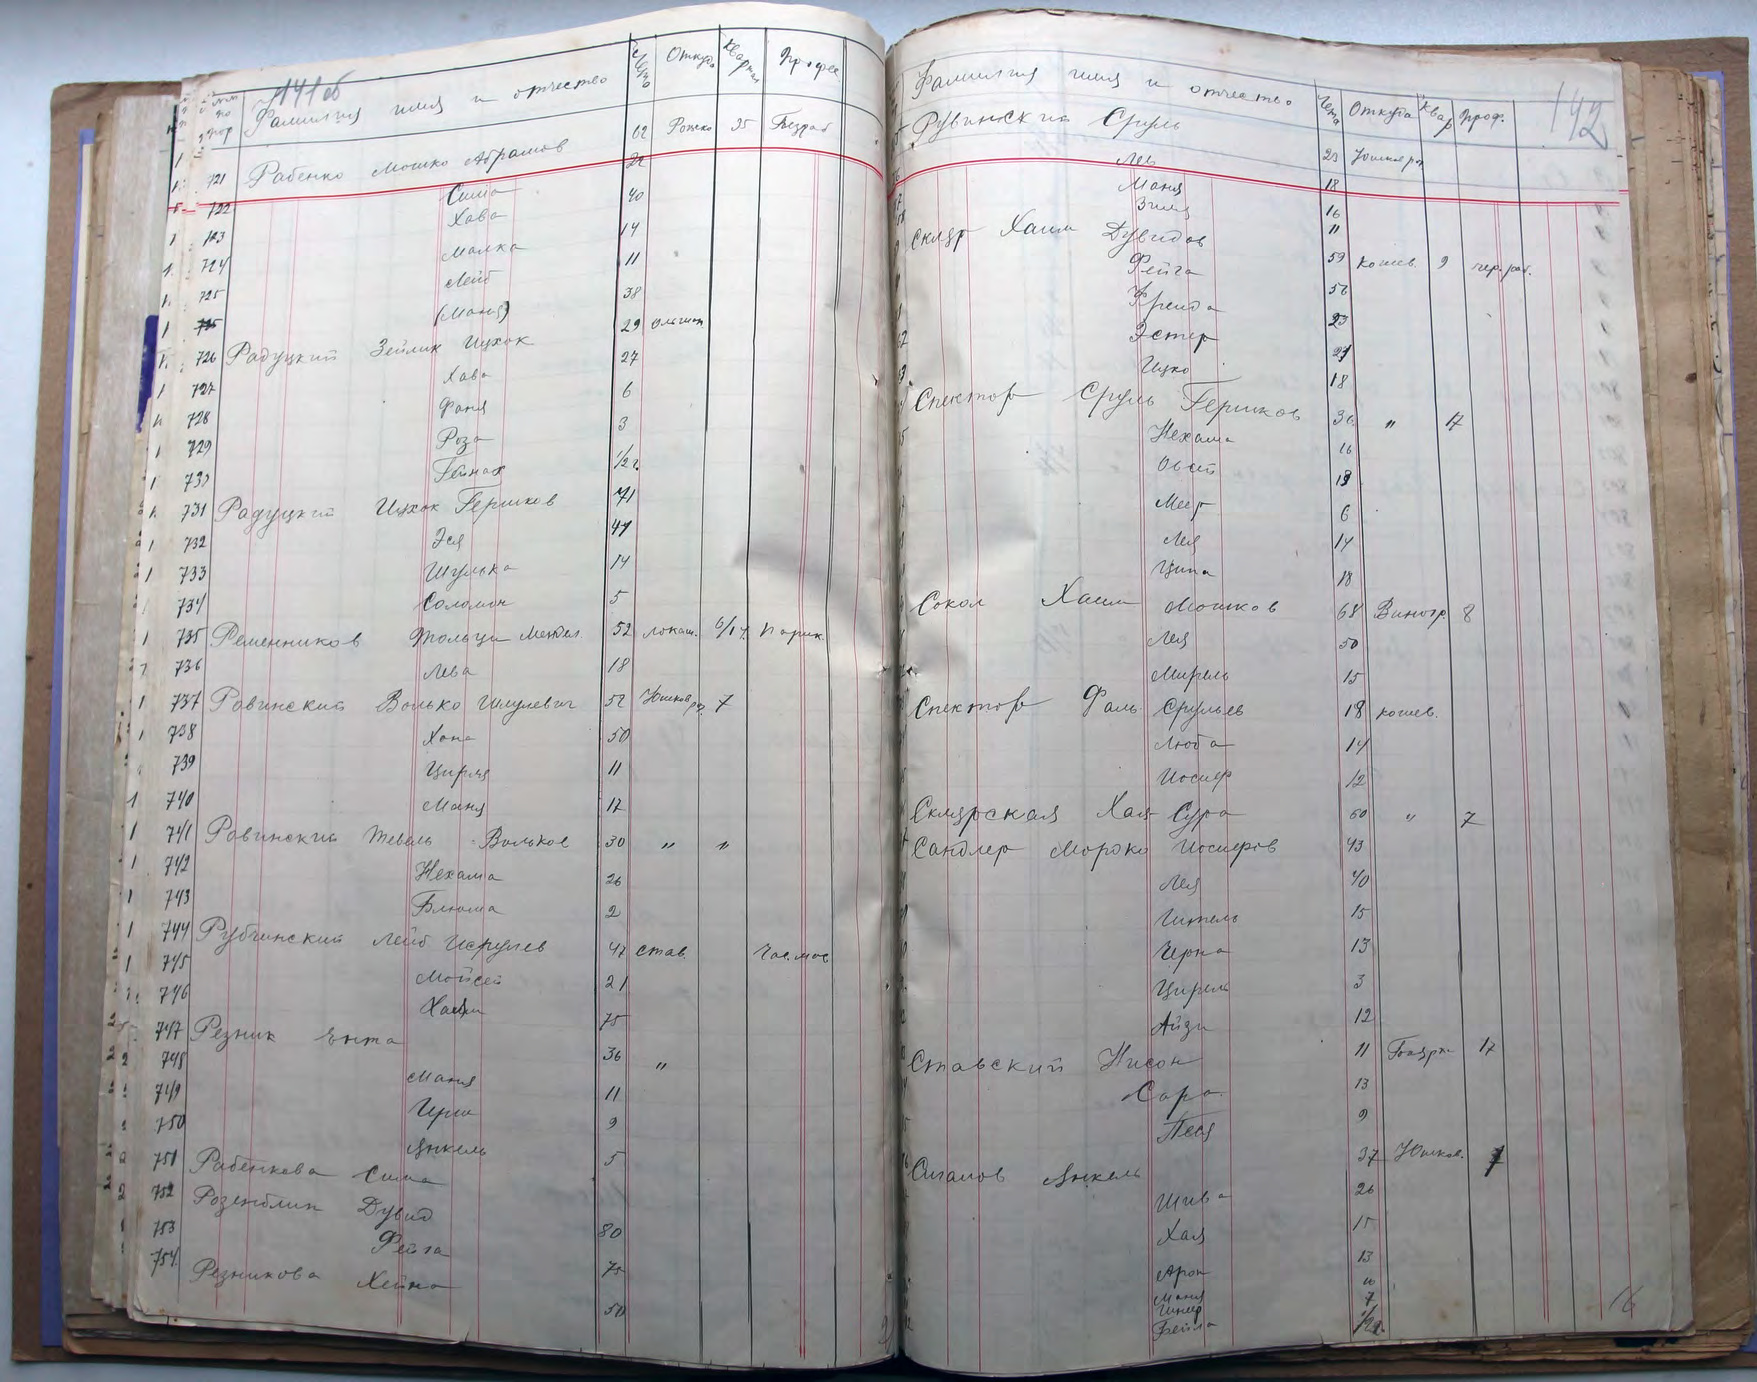 141об
№№ по пор Фамилия имя и отчество Лета Откуда Квартал Профес.
721 Рабенко Мошко Абрамов 62 Рожко 35 Безраб
722 Сима 22
723 Хава 40
724 Малка 14
725 Лейб 11
725 (Маня) 38
726 Радуцкий Зейлик Ицхок 29 Ольшан
727 Хава 27
728 Фаня 6
729 Роза 3
730 Гейнах 1/2 г.
731 Радуцкий Ицхок Гершков 71
732 Эся 47
733 Шулька 14
734 Соломон 5
735 Ременников Мендел 52 локаш. 6/17 Парик.
736 Лева 18
737 Ровинский Волько Шмулевич 52 Юшков рг. 7
738 Хана 50
739 Цирля 11
740 Маня 17
741 Ровинский Тевель Вольков 30 〃 〃
742 Нехама 26
743 Блюма 2
744 Рубчинский Лейб Исрулев 47 Став. Час. мас
745 Мойсей 21
746 Хаим 75
747 Резник Ента 36 〃
748 Маня 11
749 Ириш 9
750 Янкель 5
751 Рабенкова Сима
752 Розенблит Дувид 80
753 Фейга 75
754 Резникова Хейна 50
142
Фамилия имя и отчество Лета Откуда Квар Проф.
Рувинский Сруль
Лея 23 Юшков рг
Маня 18
Зиля 16
11
Скляр Хаим Дувидов 59 Кошев. 9 чер. раб.
Фейга 56
Фрейда 23
Эстер 21
Ицко 18
Спектор Сруль Гершков 36 〃 17
Нехама 16
Овсей 13
Меер 6
Лея 14
Ципа 18
Сокол Хаим Мошков 68 Виногр. 8
Лея 50
Мирель 15
Спектор Фаль Срульев 18 кошев.
Люба 14
Иосиф 12
Склярская Хая Сура 60 〃 7
Сандлер Мордко Иосифов 43
Лея 40
Гитель 15
Черна 13
Цирель 3
Айзи 12
Ставский Нисон 11 Боярк 17
Сара 13
Песя 9
Сигалов Янкель 37 Юшков. 7
Шива 26
Хая 15
Арон 13
Маня 10
7
Бейла 1/2 г.
16